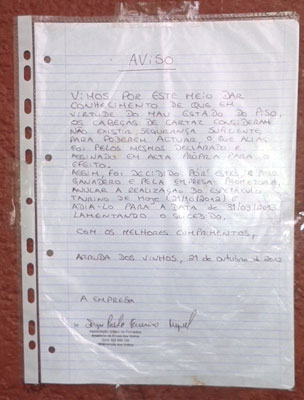 AVISO
VIMOS POR ESTE MEIO DAR
CONHECIMENTO DE QUE EM
VIRTUDE DO MAU ESTADO DO PISO,
OS CABEÇAS DE CARTAZ CONSIDERAM
NÃO EXISTIR SEGURANÇA SUFICIENTE
PARA PODEREM ACTUAR, O QUE ALIÁS
FOI PELOS MESMOS DECLARADO E
ASSINADO EM ACTA PRÓPRIA PARA O
EFEITO.
ASSIM, FOI DECIDIDO POR ESTES, E PELO
GANADERO E PELA EMPRESA PROMOTORA,
ANULAR A REALIZAÇÃO DO ESPECTÁCULO
TAURINO DE HOJE (21/10/2012) E
ADIA-LO PARA A DATA DE 31/03/2013
LAMENTANDO O SUCEDIDO.
COM OS MELHORES CUMPRIMENTOS,
ARRUDA DOS VINHOS, 21 de outubro de 2012
A EMPRESA